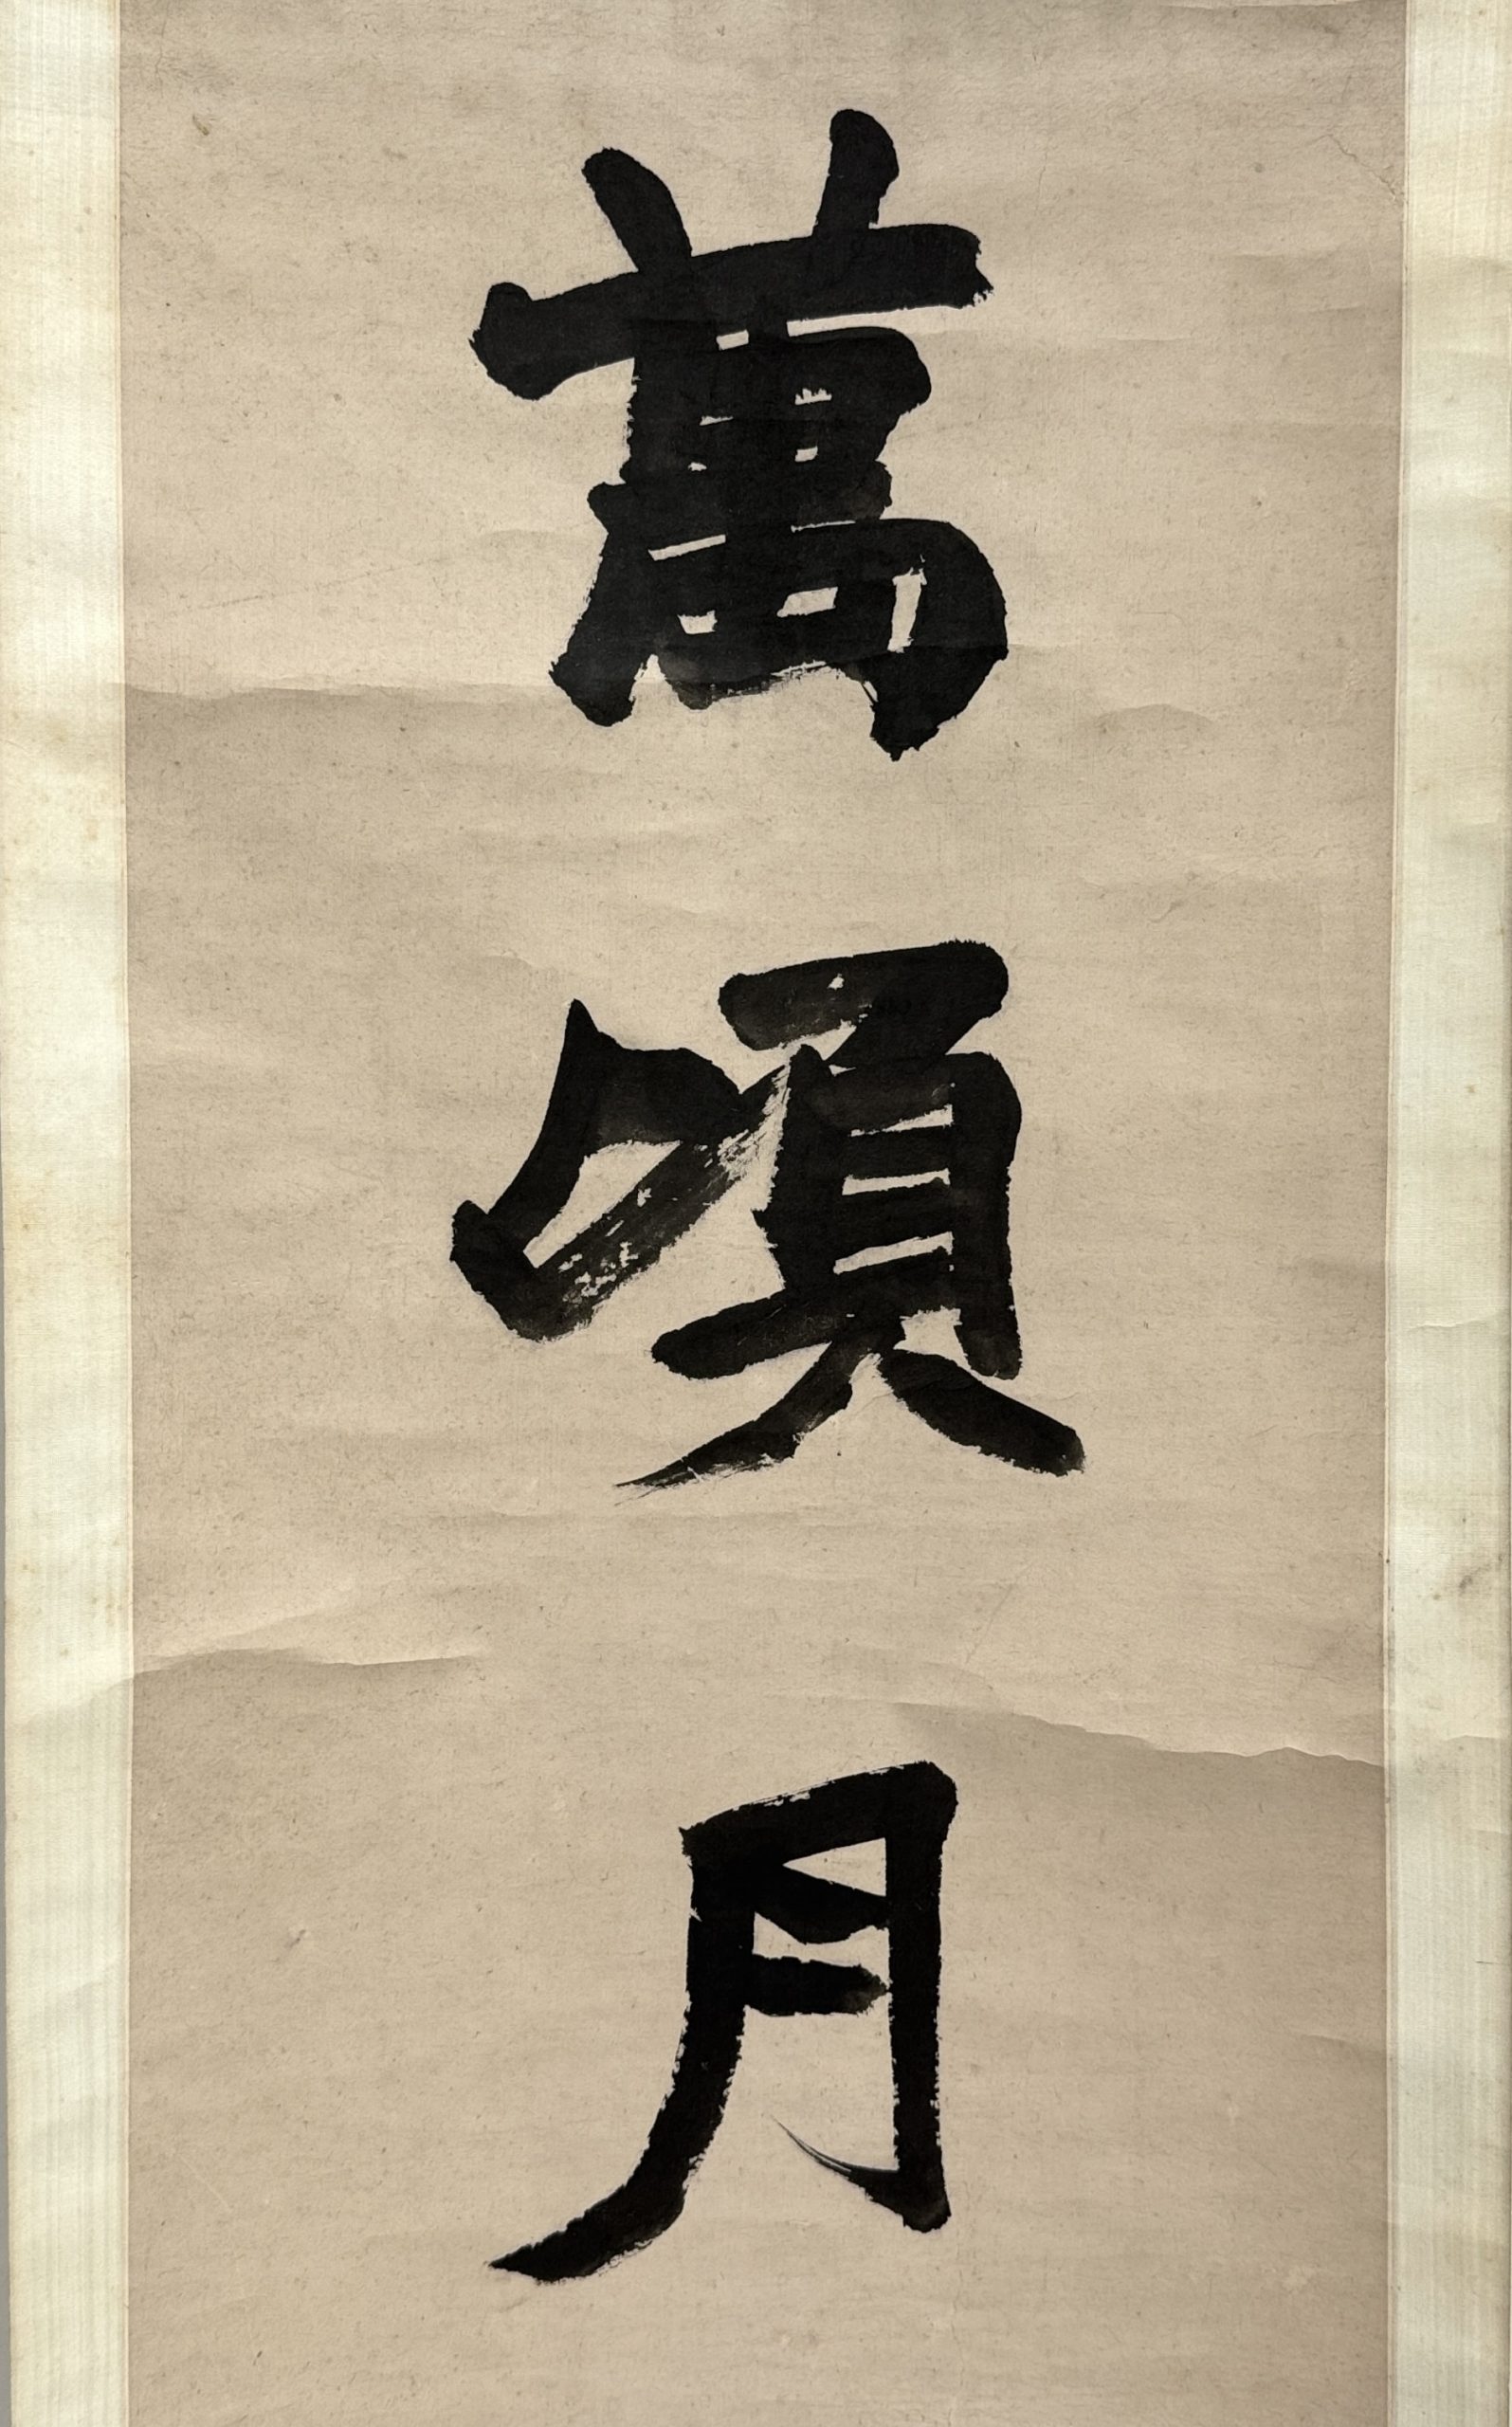 萬頃月